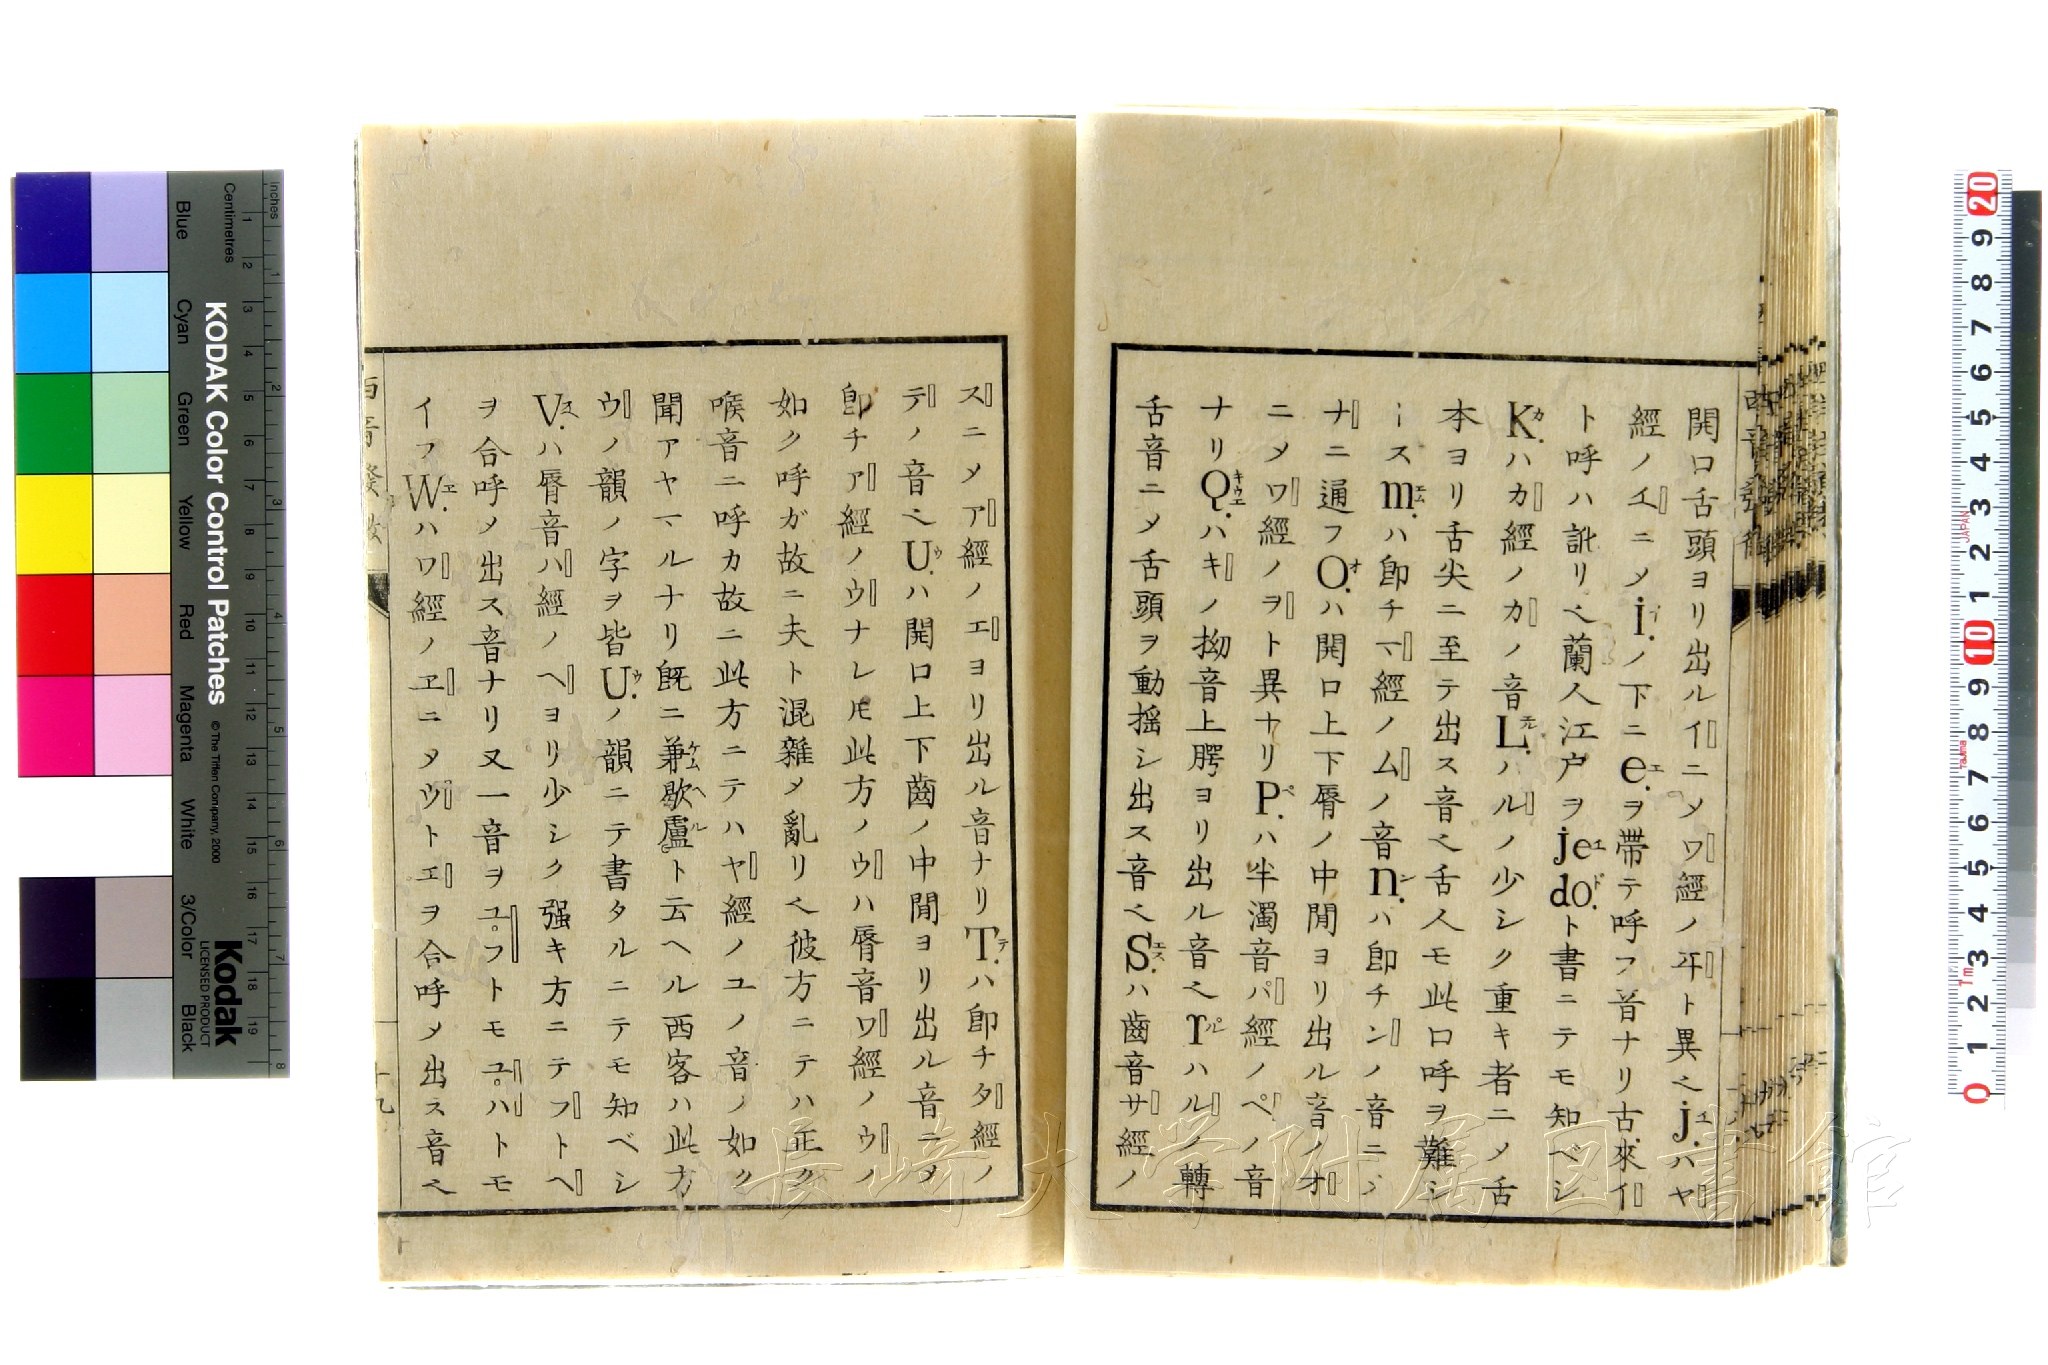 開口舌頭ヨリ出ルイニメワ經ノヰト異ヘj.ハヤ
經ノイニメi.ノ下ニe.ヲ帶テ呼フ音ナリ古來イ
ト呼ハ訛リヘ蘭人江戸ヲjedo.ト書ニテモ知ベシ
K.ハカ經ノカノ音L.ハルノ少シク重キ者ニメ舌
本ヨリ舌尖ニ至テ出ス音ヘ舌人モ此口呼ヲ難シ
ースm.ハ卽チマ經ノムノ音n.ハ卽チンノ音ニノ
ナニ通フO.ハ開口上下脣ノ中間ヨリ出ル音ノオ
ニメワ經ノヲト異ナリP.ハ半濁音パ經ノペノ音
ナリQ.ハキノ拗音上腭ヨリ出ル音ヘr.ハルノ轉
舌音ニメ舌頭ヲ動搖シ出ス音ヘS.ハ齒音サ經ノ
スニメア經ノエヨリ出ル音ナリT.ハ卽チタ經ノ
テノ音ヘU.ハ開口上下齒ノ中間ヨリ出ル音ニメ
卽チア經ノウナレ𪜈此方ノウハ脣音ワ經ノウノ
如ク呼ガ故ニ夫ト混雜メ亂リヘ彼方ニテハ正ク
喉音ニ呼カ故ニ此方ニテハヤ經ノユノ音ノ如ク
聞アヤマルナリ旣ニ兼歇盧ト云ヘル西客ハ此方
ウノ韻ノ字ヲ皆U.ノ韻ニテ書タルニテモ知ベシ
V.ハ脣音ハ經ノヘヨリ少シク强キ方ニテフトヘ
ヲ合呼メ出ス音ナリ又一音ヲユ。フトモユ。ハトモ
イフW.ハワ經ノヱニメウトエヲ合呼メ出ス音ヘ
十九
KODAK Color Control Patches
© The Tiffen Company, 2000
Kodak
LICENSED PRODUCT
Inches
Centimetres
Blue
Cyan
Green
Yellow
Red
Magenta
White
3/Color
Black
JAPAN
長崎大学附属図書館